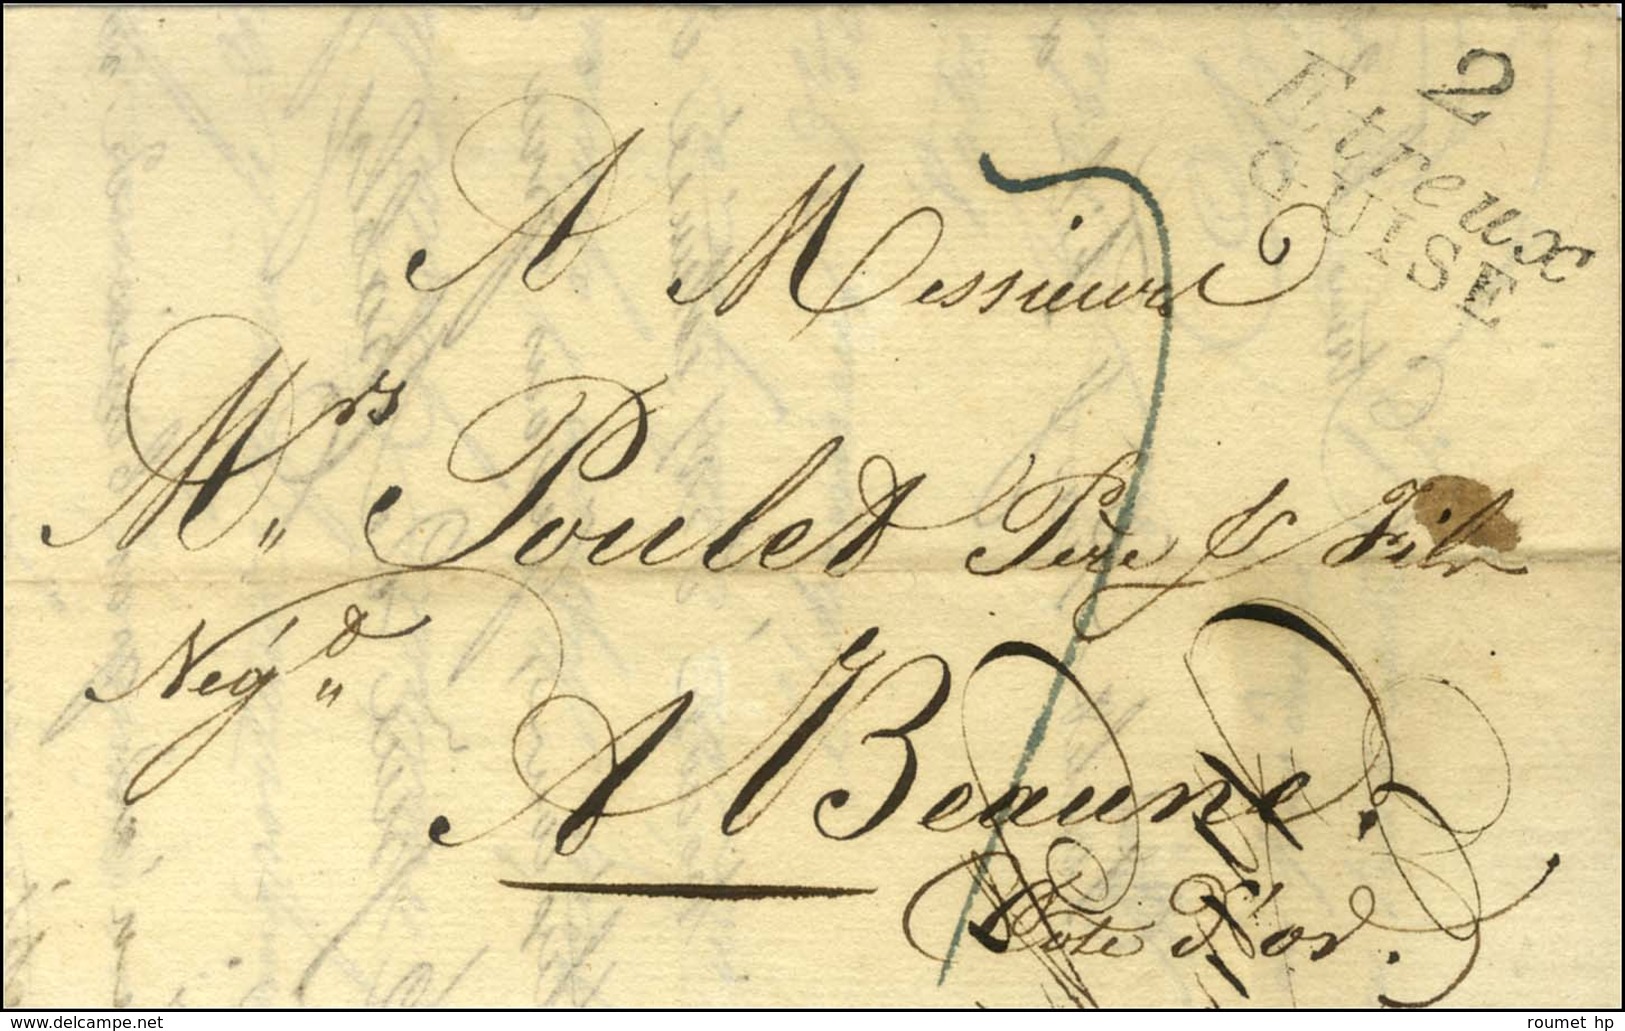 2
Etreux
GUISE
7
A Messieurs
Mrs Poulet Père & Fils
Negt
A Beaune.
Cote D'or.
www.delcampe.net
roumet hp